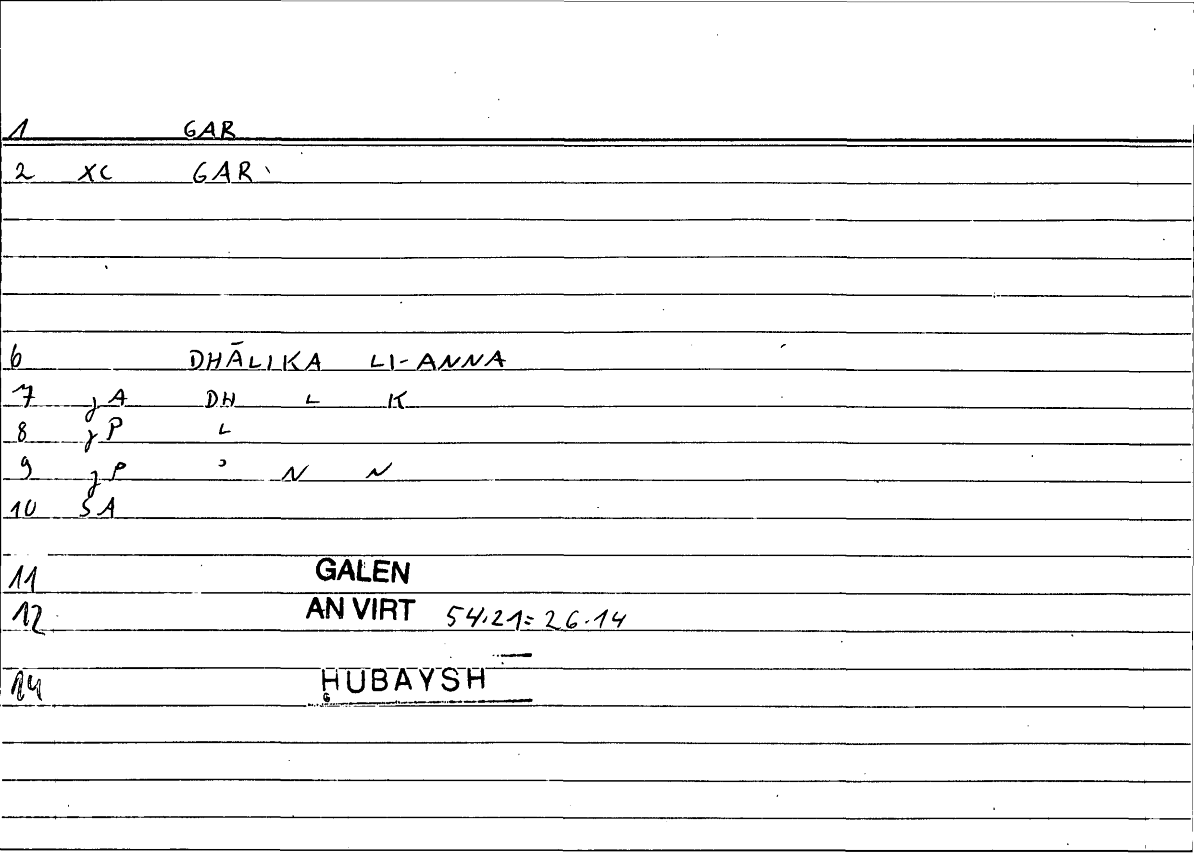 1 GAR
2 XC GAR
6 DHĀLIKA LI-ANNA
7 jA DH L K
8 jP L
9 jP ʾ N N
10 SA
11 GALEN
12 AN VIRT 54.21= 26.14
14 HUBAYSH